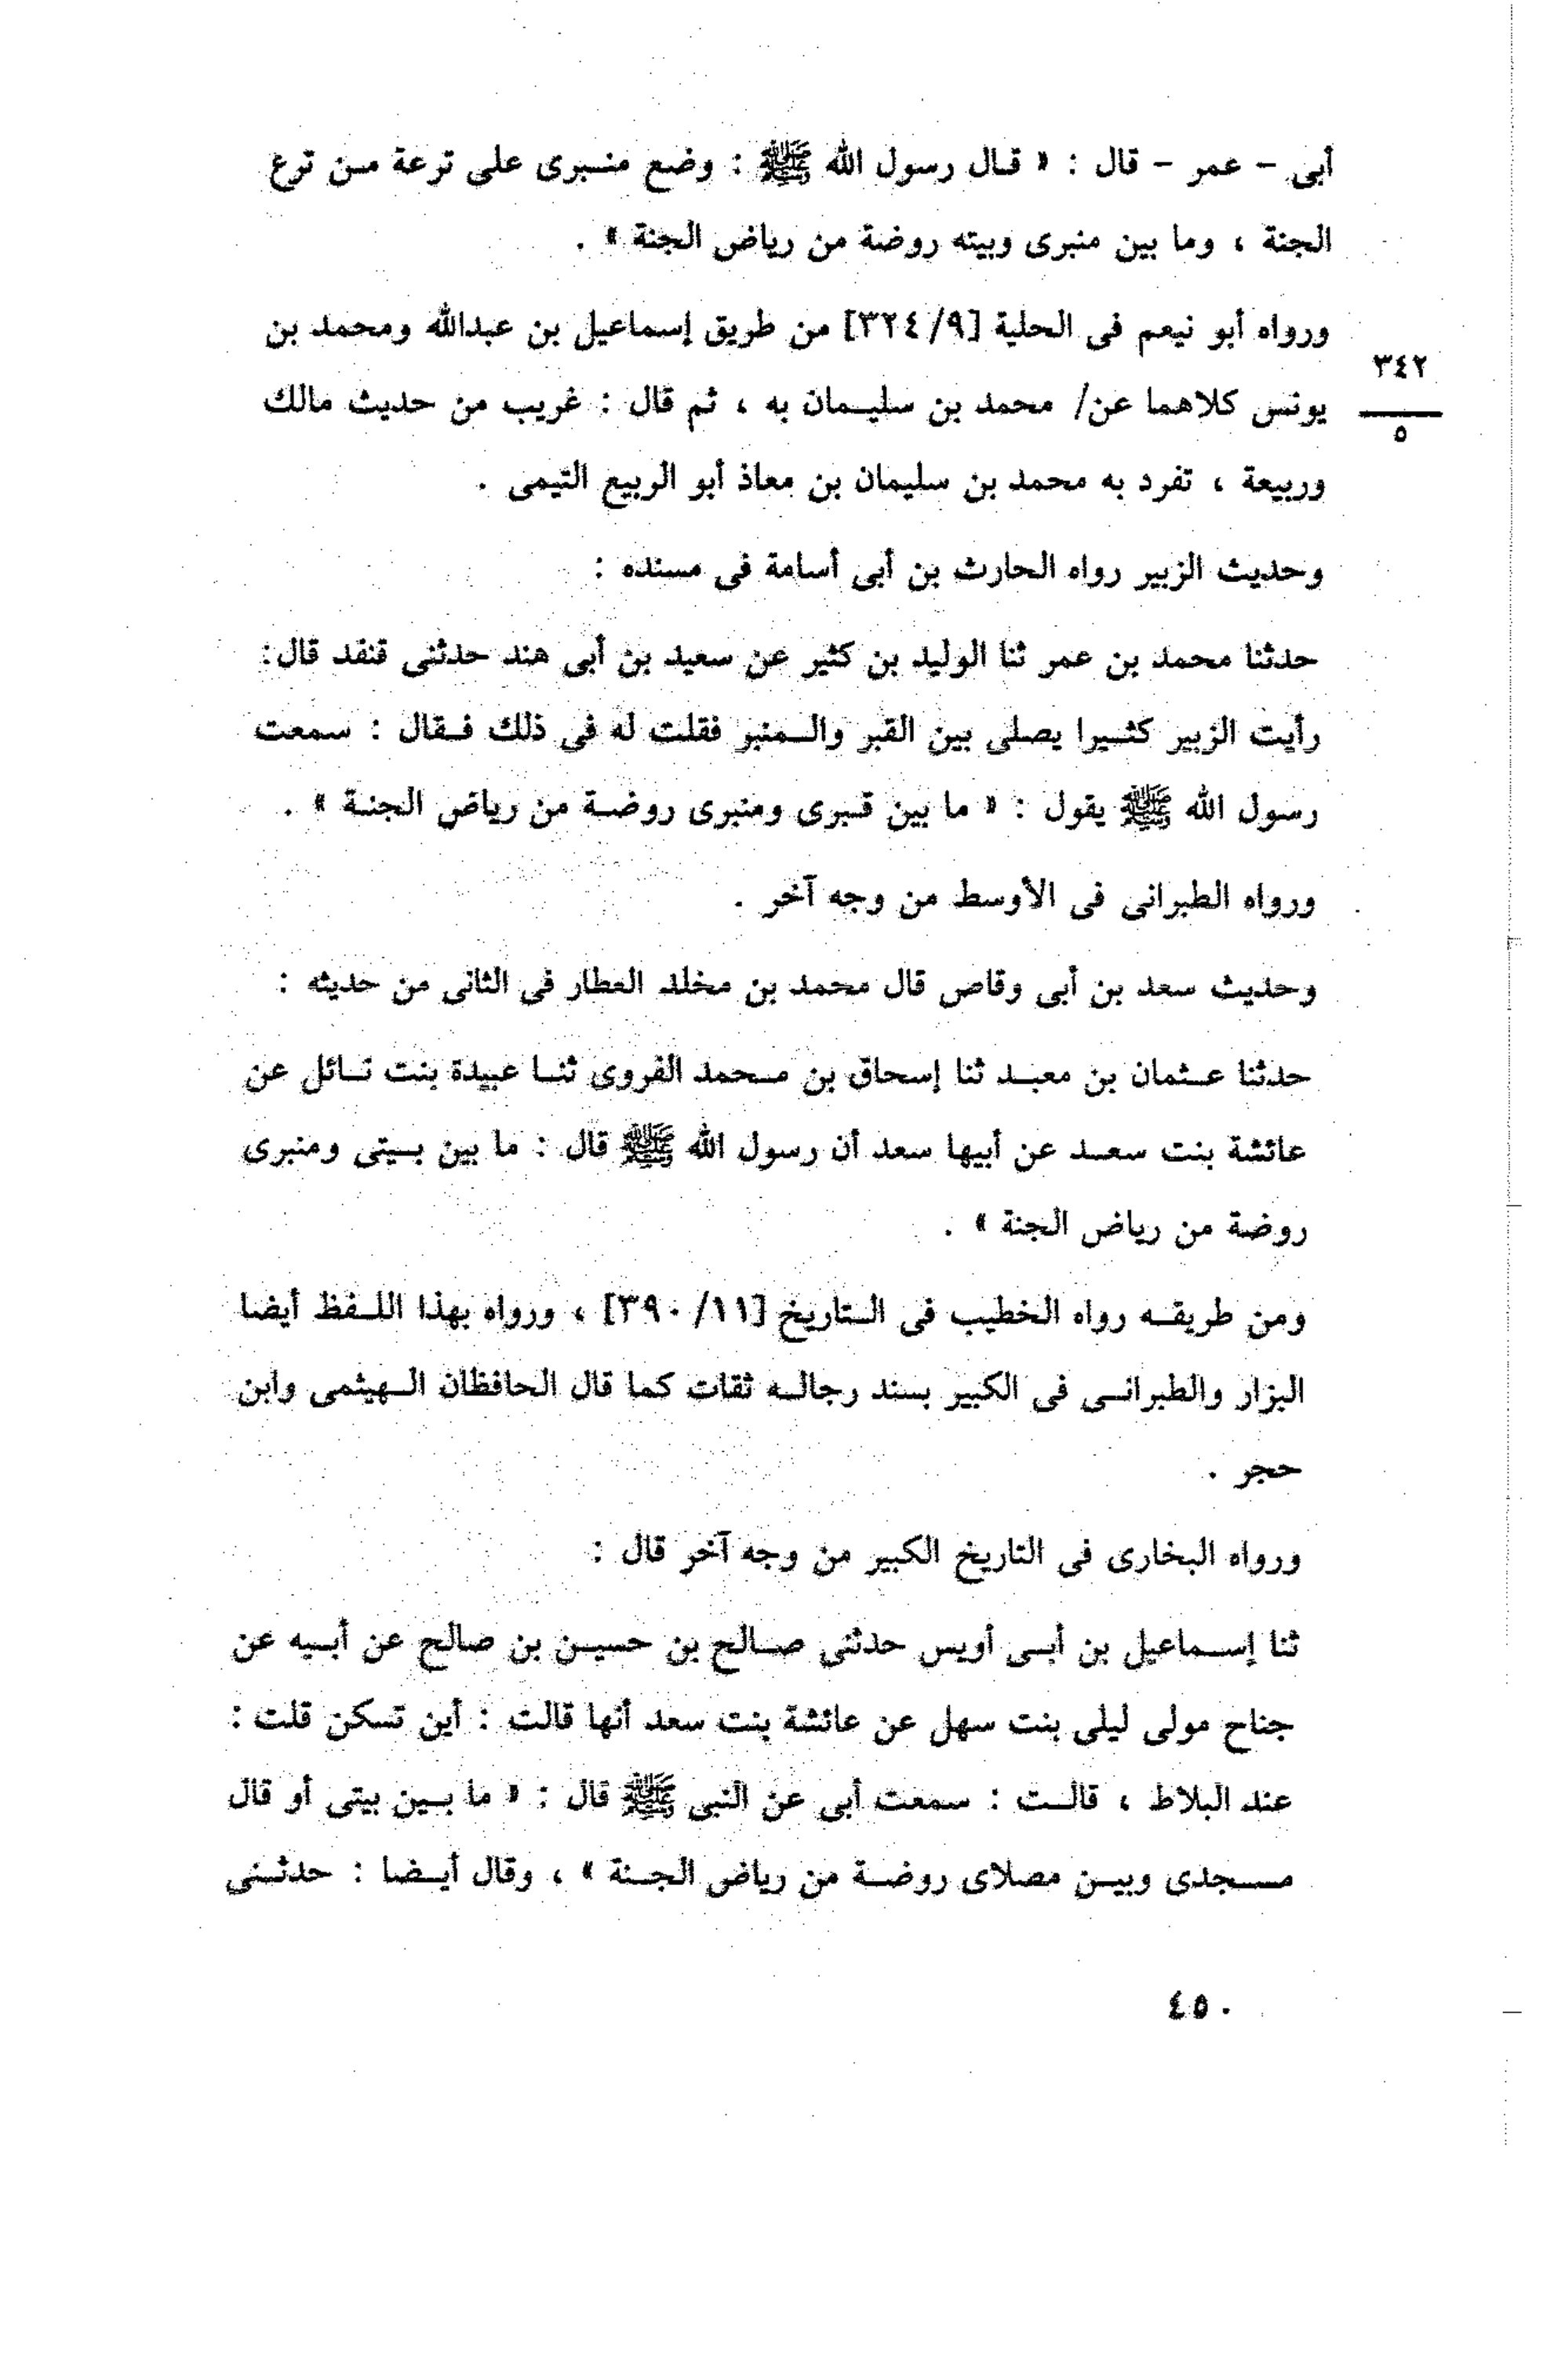 أبى - عمر - قال : « قال رسول الله ﷺ : وضع منبرى على ترعة من ترع
الجنة ، وما بين منبرى وبيته روضة من رياض الجنة » .
ورواه أبو نيعم فى الحلية [٩/ ٣٢٤] من طريق إسماعيل بن عبدالله ومحمد بن
٣٤٢
يونس كلاهما عن/ محمد بن سليمان به ، ثم قال : غريب من حديث مالك
٥
وربيعة ، تفرد به محمد بن سليمان بن معاذ أبو الربيع التيمى .
وحديث الزبير رواه الحارث بن أبى أسامة فى مسنده :
حدثنا محمد بن عمر ثنا الوليد بن كثير عن سعيد بن أبى هند حدثنى قنفد قال:
رأيت الزبير كثيرا يصلى بين القبر والمنبر فقلت له فى ذلك فقال : سمعت
رسول الله ﷺ يقول : « ما بين قبرى ومنبرى روضة من رياض الجنة » .
ورواه الطبرانى فى الأوسط من وجه آخر .
وحديث سعد بن أبى وقاص قال محمد بن مخلد العطار فى الثانى من حديثه :
حدثنا عثمان بن معبد ثنا إسحاق بن محمد الفروى ثنا عبيدة بنت نائل عن
عائشة بنت سعد عن أبيها سعد أن رسول الله ﷺ قال : ما بين بيتى ومنبرى
روضة من رياض الجنة » .
ومن طريقه رواه الخطيب فى التاريخ [١١/ ٣٩٠] ، ورواه بهذا اللفظ أيضا
البزار والطبرانى فى الكبير بسند رجاله ثقات كما قال الحافظان الهيثمى وابن
حجر .
ورواه البخارى فى التاريخ الكبير من وجه آخر قال :
ثنا إسماعيل بن أبى أويس حدثنى صالح بن حسين بن صالح عن أبيه عن
جناح مولى ليلى بنت سهل عن عائشة بنت سعد أنها قالت : أين تسكن قلت :
عند البلاط ، قالت : سمعت أبى عن النبى ﷺ قال : « ما بين بيتى أو قال
مسجدى وبين مصلاى روضة من رياض الجنة » ، وقال أيضا : حدثنى
٤٥٠